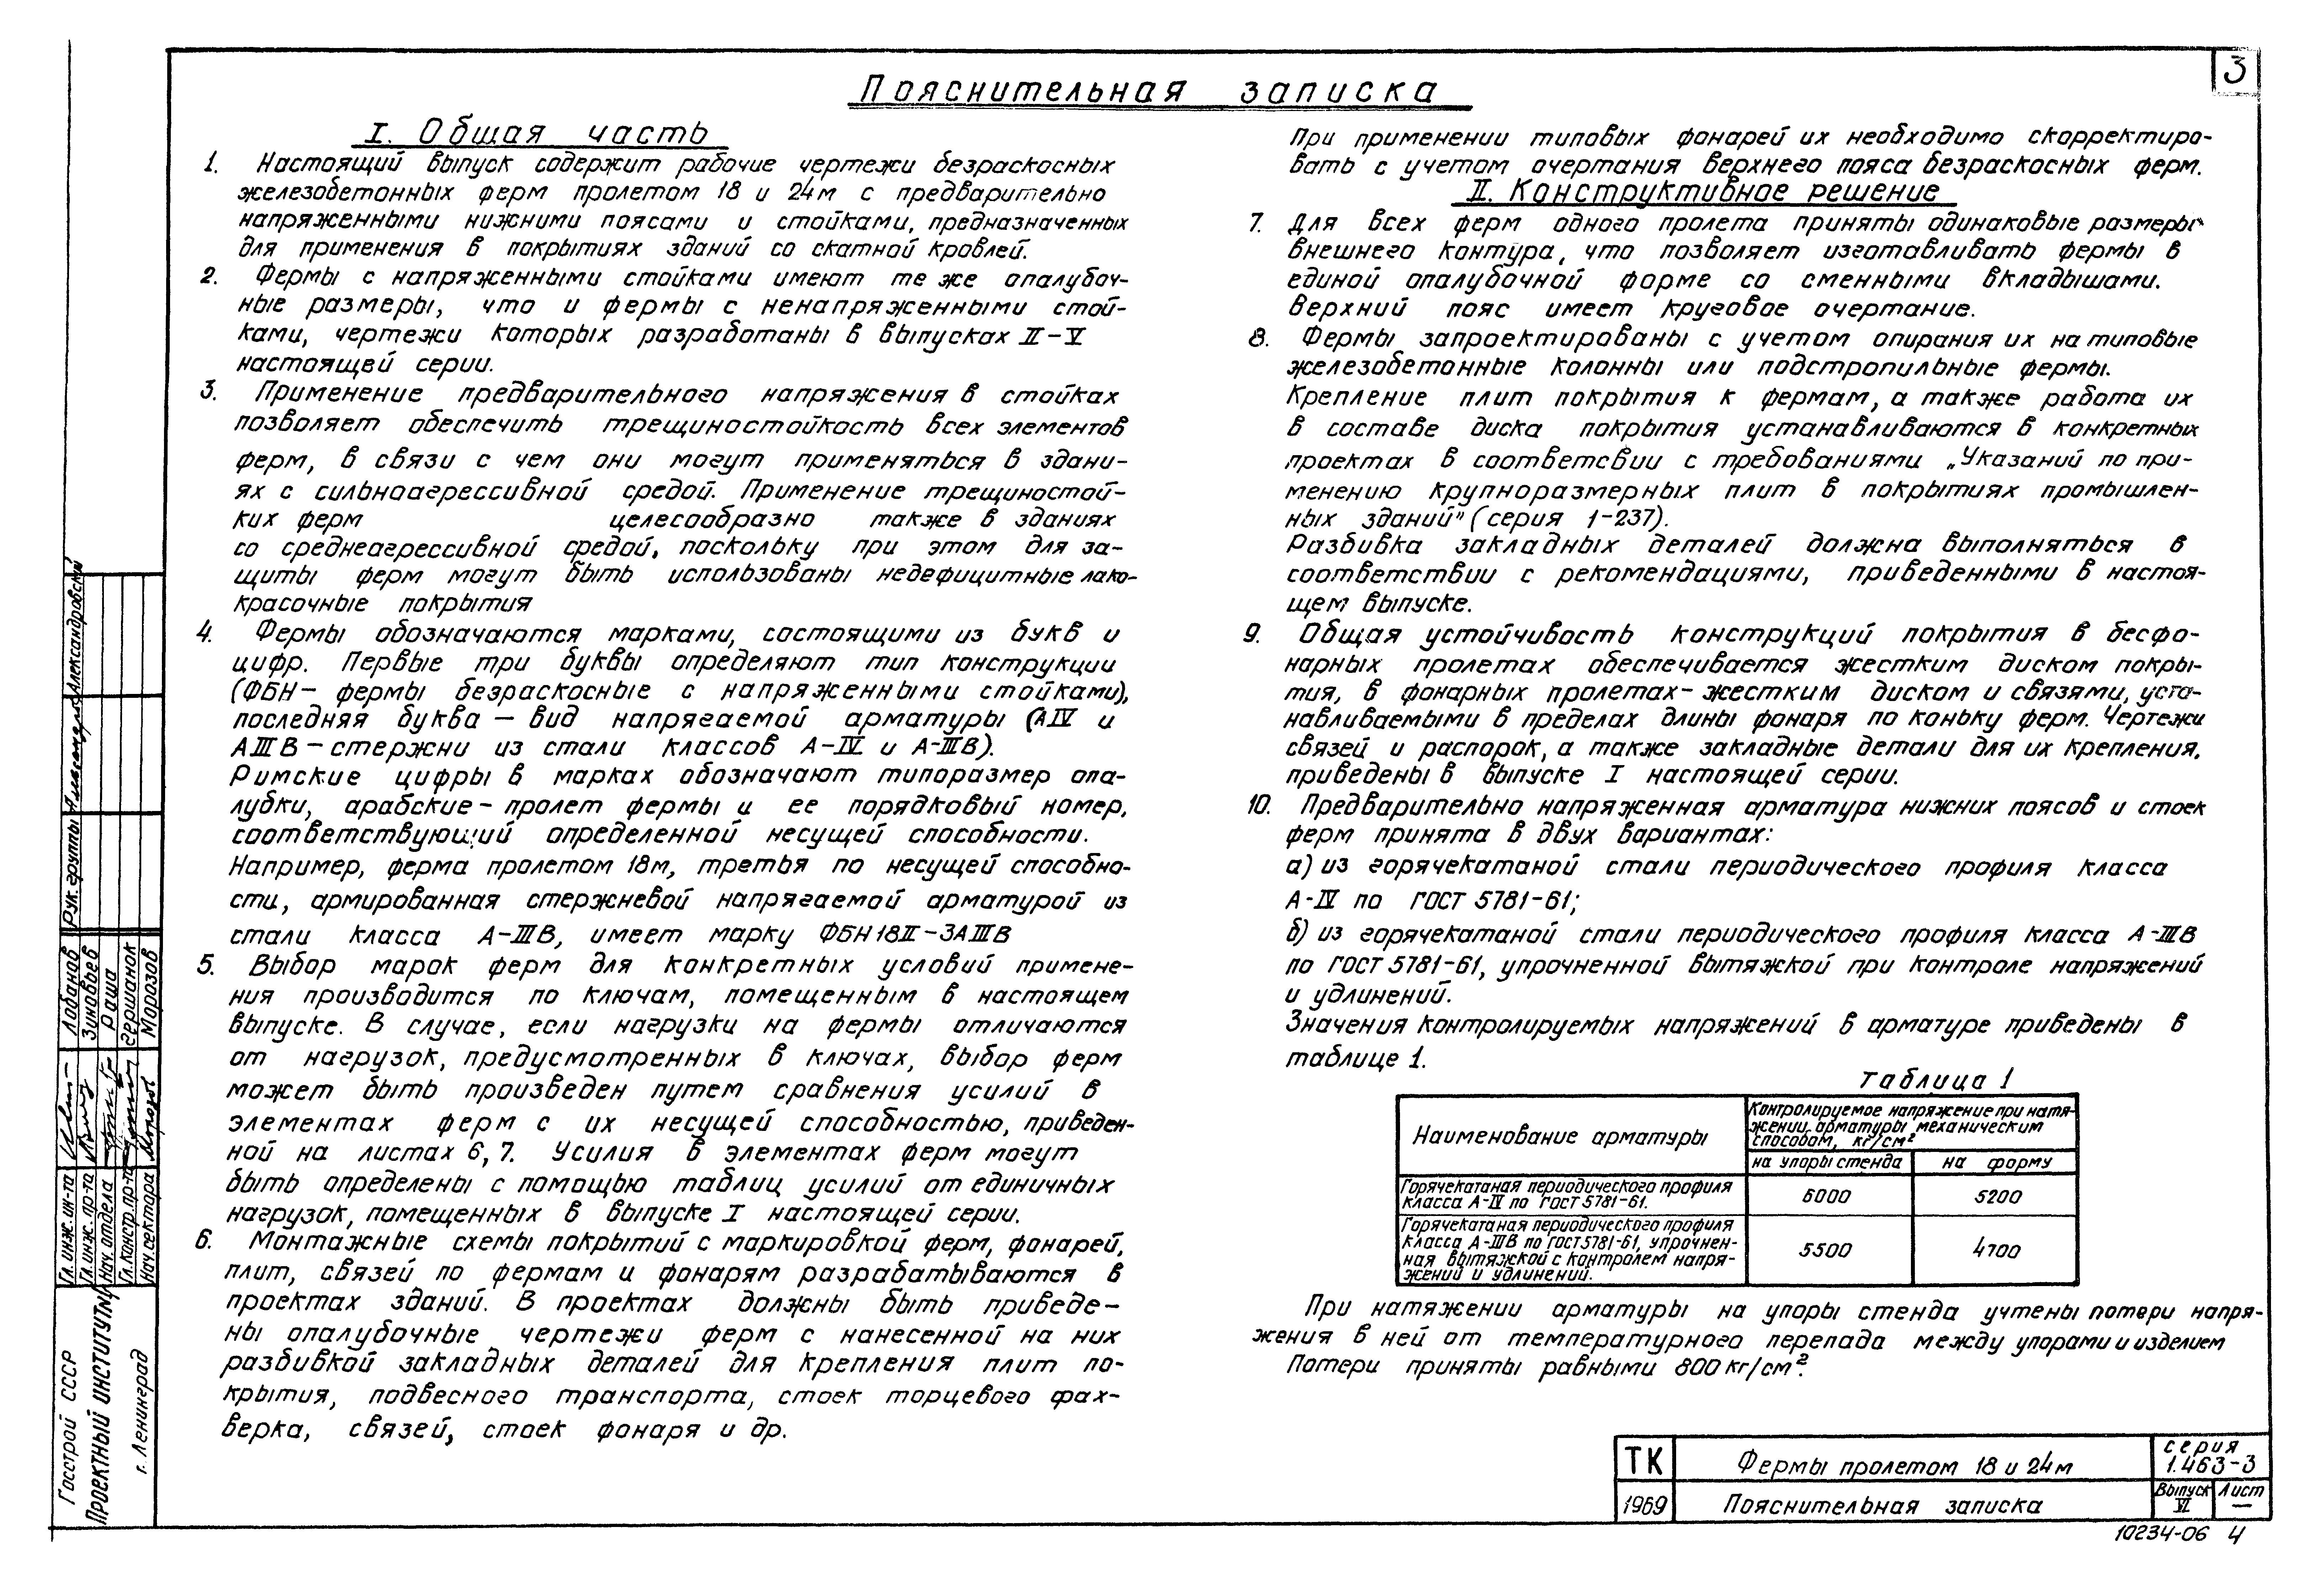 3
Пояснительная записка
I. Общая часть
1. Настоящий выпуск содержит рабочие чертежи безраскосных
железобетонных ферм пролетом 18 и 24м с предварительно
напряженными нижними поясами и стойками, предназначенных
для применения в покрытиях зданий со скатной кровлей.
2. Фермы с напряженными стойками имеют те же опалубоч-
ные размеры, что и фермы с ненапряженными стой-
ками, чертежи которых разработаны в выпусках II-V
настоящей серии.
3. Применение предварительного напряжения в стойках
позволяет обеспечить трещиностойкость всех элементов
ферм, в связи с чем они могут применяться в здани-
ях с сильноагрессивной средой. Применение трещиностой-
ких ферм целесообразно также в зданиях
со среднеагрессивной средой, поскольку при этом для за-
щиты ферм могут быть использованы недефицитные лако-
красочные покрытия
4. Фермы обозначаются марками, состоящими из букв и
цифр. Первые три буквы определяют тип конструкции
(ФБН- фермы безраскосные с напряженными стойками),
последняя буква - вид напрягаемой арматуры (АIV и
АIIIВ - стержни из стали классов А-IV и А-IIIВ).
Римские цифры в марках обозначают типоразмер опа-
лубки, арабские - пролет фермы и ее порядковый номер,
соответствующий определенной несущей способности.
Например, ферма пролетом 18м, третья по несущей способно-
сти, армированная стержневой напрягаемой арматурой из
стали класса А-IIIВ, имеет марку ФБН18II-3АIIIВ
5. Выбор марок ферм для конкретных условий примене-
ния производится по ключам, помещенным в настоящем
выпуске. В случае, если нагрузки на фермы отличаются
от нагрузок, предусмотренных в ключах, выбор ферм
может быть произведен путем сравнения усилий в
элементах ферм с их несущей способностью, приведен-
ной на листах 6, 7. Усилия в элементах ферм могут
быть определены с помощью таблиц усилий от единичных
нагрузок, помещенных в выпуске I настоящей серии.
6. Монтажные схемы покрытий с маркировкой ферм, фонарей,
плит, связей по фермам и фонарям разрабатываются в
проектах зданий. В проектах должны быть приведе-
ны опалубочные чертежи ферм с нанесенной на них
разбивкой закладных деталей для крепления плит по-
крытия, подвесного транспорта, стоек торцевого фах-
верка, связей, стоек фонаря и др.
При применении типовых фонарей их необходимо скорректиро-
вать с учетом очертания верхнего пояса безраскосных ферм.
II. Конструктивное решение
7. Для всех ферм одного пролета приняты одинаковые размеры
внешнего контура, что позволяет изготавливать фермы в
единой опалубочной форме со сменными вкладышами.
Верхний пояс имеет круговое очертание.
8. Фермы запроектированы с учетом опирания их на типовые
железобетонные колонны или подстропильные фермы.
Крепление плит покрытия к фермам, а также работа их
в составе диска покрытия устанавливаются в конкретных
проектах в соответсвии с требованиями „Указаний по при-
менению крупноразмерных плит в покрытиях промышлен-
ных зданий" (серия 1-237).
Разбивка закладных деталей должна выполняться в
соответствии с рекомендациями, приведенными в настоя-
щем выпуске.
9. Общая устойчивость конструкций покрытия в бесфо-
нарных пролетах обеспечивается жестким диском покры-
тия, в фонарных пролетах- жестким диском и связями, уста-
навливаемыми в пределах длины фонаря по коньку ферм. Чертежи
связей и распорок, а также закладные детали для их крепления,
приведены в выпуске I настоящей серии.
10. Предварительно напряженная арматура нижних поясов и стоек
ферм принята в двух вариантах:
а) из горячекатаной стали периодического профиля класса
А-IV по ГОСТ 5781-61;
б) из горячекатаной стали периодического профиля класса А-IIIВ
по ГОСТ 5781-61, упрочненной вытяжкой при контроле напряжений
и удлинений.
Значения контролируемых напряжений в арматуре приведены в
таблице 1.
таблица 1
Наименование арматуры
Контролируемое напряжение при натя-
жении арматуры механическим
способом, кг/см²
на упоры стенда
на форму
Горячекатаная периодического профиля
класса А-IV по ГОСТ 5781-61.
6000
5200
Горячекатаная периодического профиля
класса А-IIIВ по ГОСТ 5781-61, упрочнен-
ная вытяжкой с контролем напря-
жений и удлинений.
5500
4700
При натяжении арматуры на упоры стенда учтены потери напря-
жения в ней от температурного перепада между упорами и изделием
Потери приняты равными 800 кг/см².
ТК
1969
Фермы пролетом 18 и 24м
Пояснительная записка
серия
1.463-3
Выпуск
VI
Лист
—
10234-06 4
Госстрой СССР
Проектный институт №1
г. Ленинград
Гл. инж. ин-та
Гл. инж. пр-та
Нач. отдела
Гл. констр. пр-та
Нач. сектора
Лобанов
Зиновьев
Раша
Гершанок
Морозов
Рук. группы
Александровский